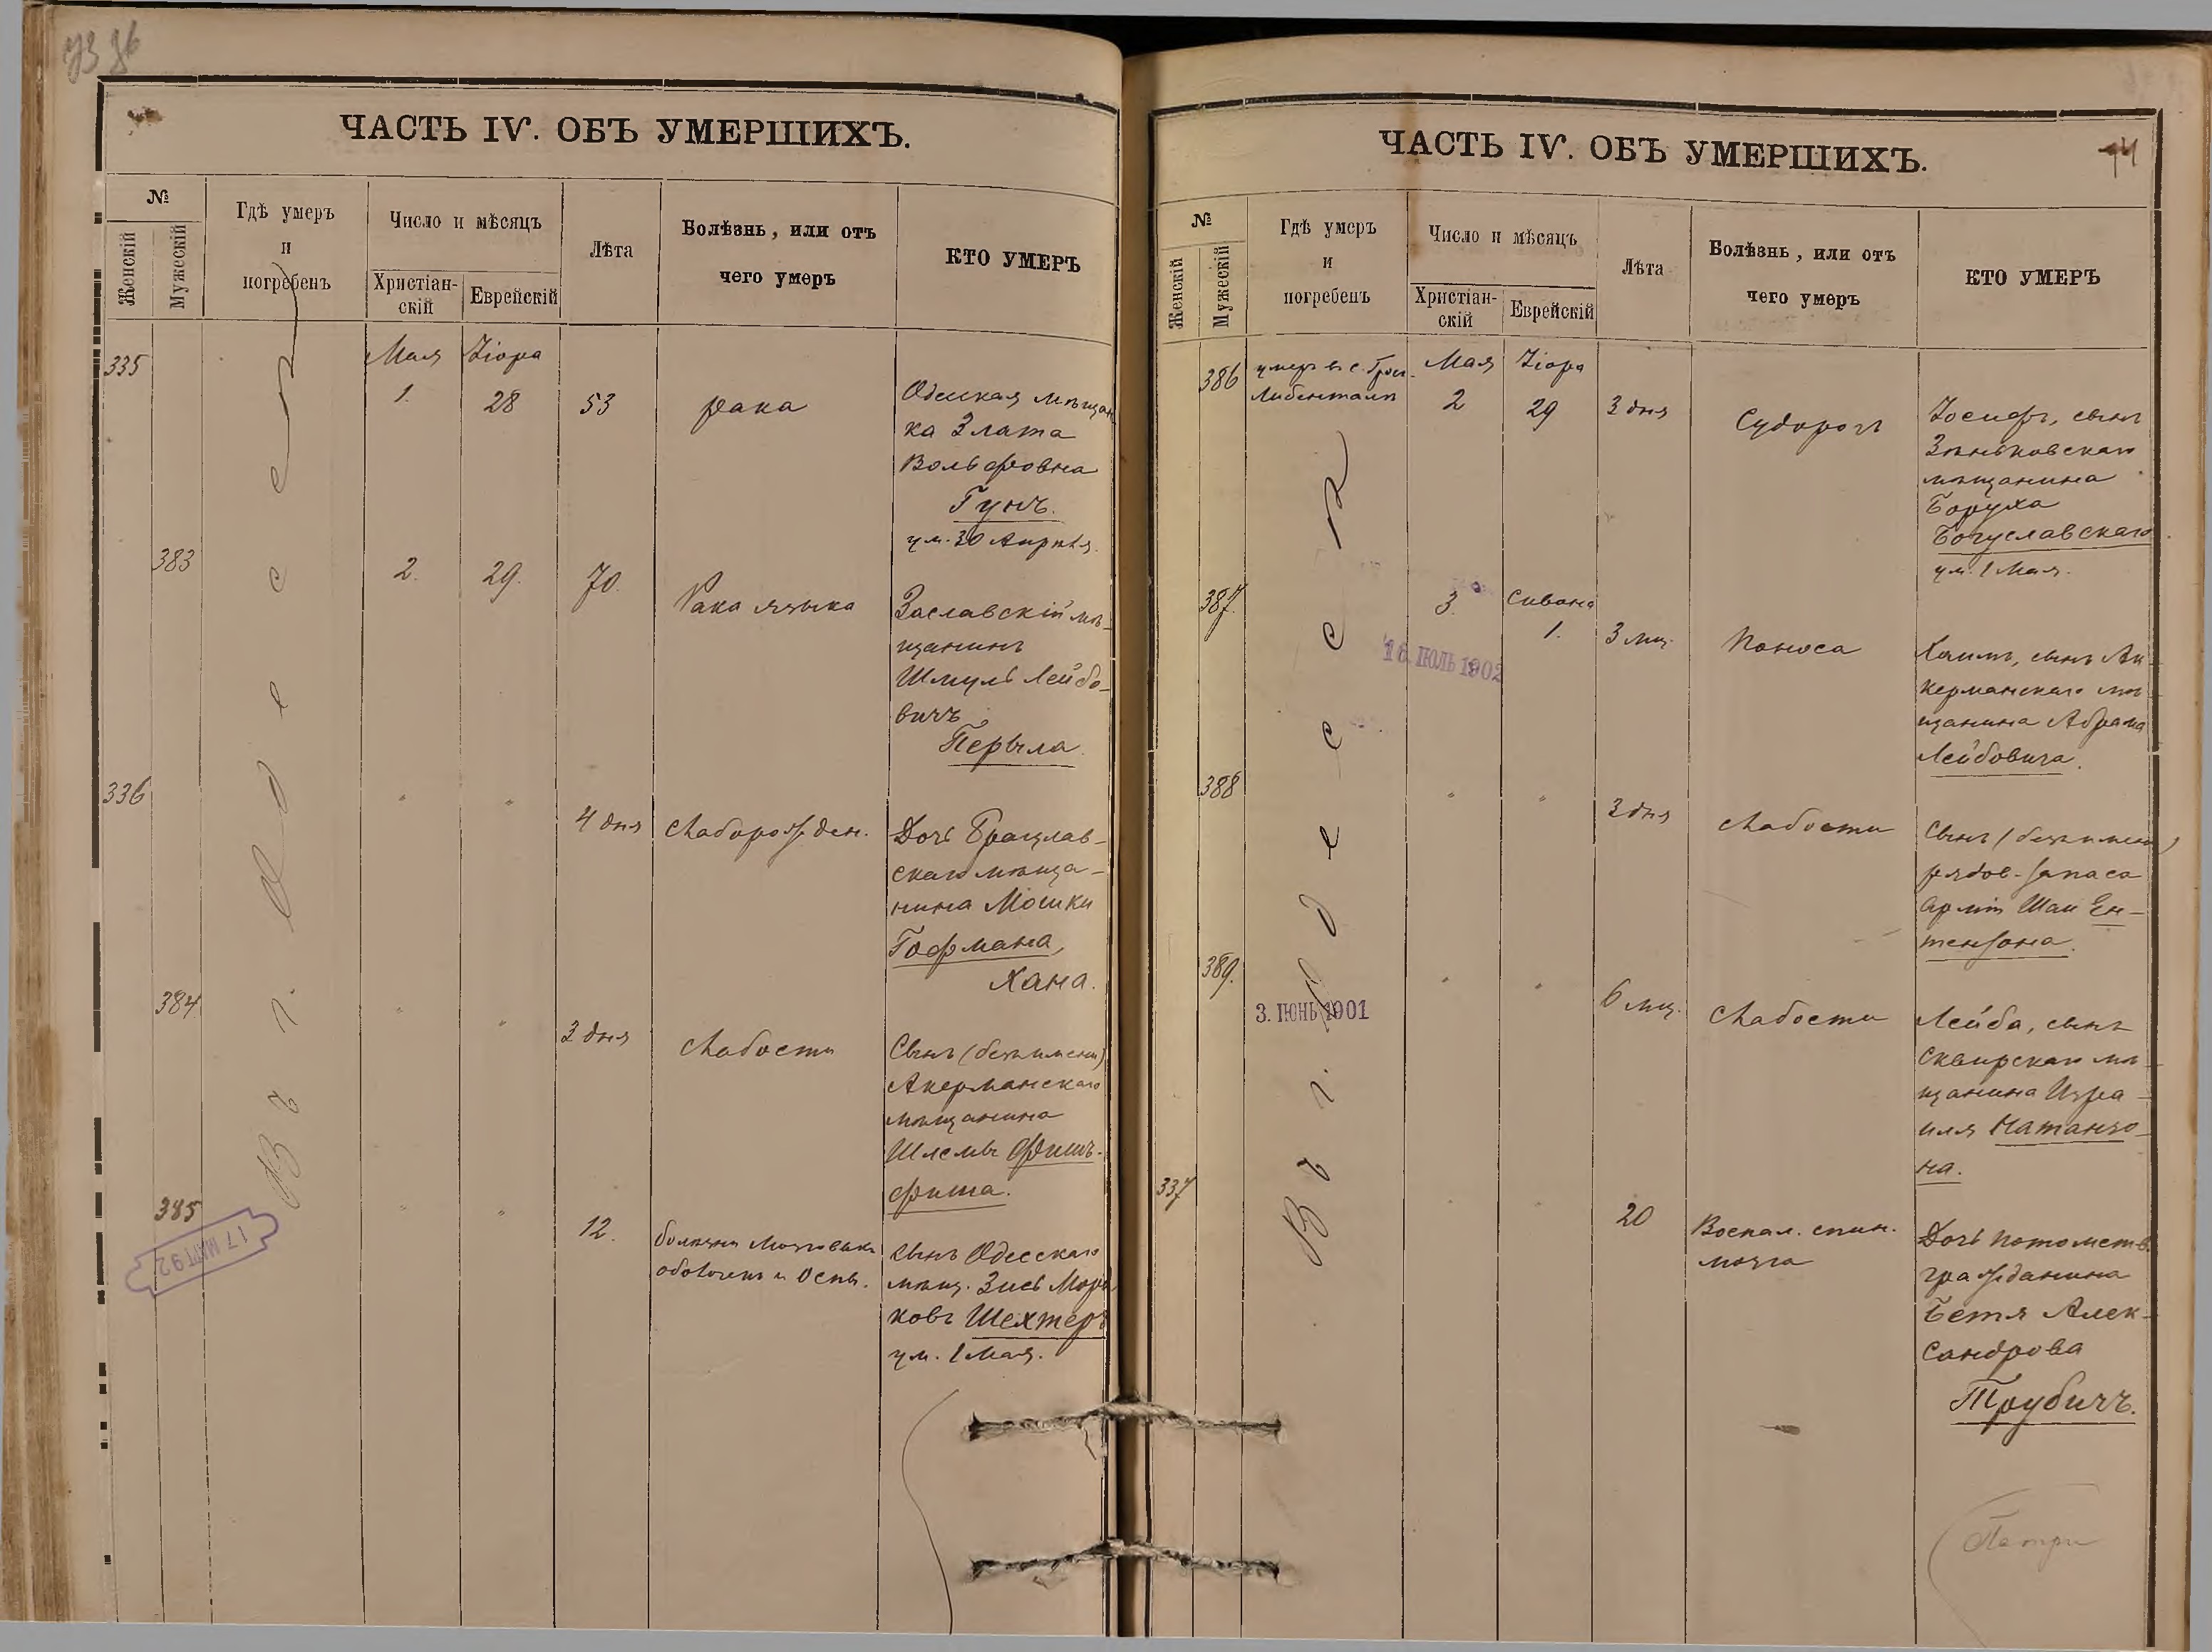 ЧАСТЬ IV. ОБЪ УМЕРШИХЪ.
№
Женскій
Мужескій
Гдѣ умеръ
и
погребенъ
Число и мѣсяцъ
Христіан-
скій
Еврейскій
Лѣта
Болѣзнь, или отъ
чего умеръ
КТО УМЕРЪ
Въ г. Одессѣ
335
Мая Іюра
1. 28 53 рака
Одесская мѣщан
ка Злата
Вольфовна
Гунъ.
ум. 30 Апрѣля.
383
2. 29. 70. Рака языка
Заславскій мѣ-
щанинъ
Шмуль Лейбо-
вичъ
Перыла
336
" " 4 дня слаборожден.
Дочь Брацлав-
скаго мѣща-
нина Мошки
Гофмана,
Хана.
384
" " 3 дня слабости
Сынъ (безъимени)
Акерманскаго
мѣщанина
Шлемы Фишъ-
фиша.
385
" " 12.
болѣзни мозговыхъ
оболочекъ и Оспы.
сынъ Одесскаго
мѣщ. Зись Мор
ковъ Шехтеръ
ум. 1 Мая.
17 МАРТ 92
ЧАСТЬ IV. ОБЪ УМЕРШИХЪ.
94
№
Женскій
Мужескій
Гдѣ умеръ
и
погребенъ
Число и мѣсяцъ
Христіан-
скій
Еврейскій
Лѣта
Болѣзнь, или отъ
чего умеръ
КТО УМЕРЪ
Въ г. Одессѣ
386
умеръ въ с. Грос-
Либенталь
Мая Іюра
2 29 3 дня Судорогъ
Іосифъ, сынъ
Зѣньковскаго
мѣщанина
Боруха
Богуславскаго
ум. 1 Мая.
387.
3. Сивана
1. 3 мц. Поноса
Хаимъ, сынъ Ак-
керманскаго мѣ-
щанина Абрама
Лейбовича.
16. ІЮЛЬ 1902
388
" " 3 дня слабости
Сынъ (безъимени)
рядов. запаса
арміи Шаи Ен-
тензона.
389.
" " 6 мц. слабости
Лейба, сынъ
Сквирскаго мѣ-
щанина Изра-
иля Натанзо-
на.
3. ІЮНЬ 1901
337
" " 20
Воспал. спин.
мозга
Дочь потомств.
гражданина
Бетя Алек-
сандрова
Трубичъ.